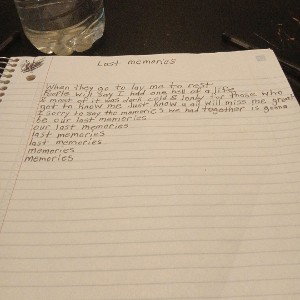 Last memories
When they go to lay me to rest
People will say I had one hell of a life
& most of it was dark cold & lonly for those who
got to know me Just know y all will miss me great
I sorry to say the memories we had together is gonna
be our last memories
our last memories
last memories
last memories
memories
memories